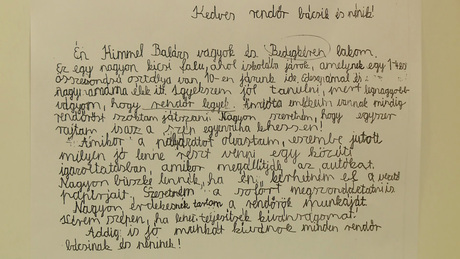 Kedves rendőr bácsik és nénik!
Én Himmel Balázs vagyok és Bedegkéren lakom.
Ez egy nagyon kicsi falu, ahol iskolába járok, amelynek egy 1-4
összevont osztálya van, 10-en járunk ide. Édesanyámmal és
nagymamámmal élek itt. Igyekszem jól tanulni, mert legnagyobb
vágyam, hogy rendőr legyek. Amióta emlékeim vannak mindig
rendőröst szoktam játszani. Nagyon szeretném, hogy egyszer
rajtam is az a szép egyenruha lehessen!
Amikor a pályázatot olvastam, eszembe jutott
milyen jó lenne részt venni egy közúti
igazoltatásban, amikor megállítják az autókat.
Nagyon büszke lennék, ha én kérhetném el a vezető
papírjait. Szeretném a sofőrt megszondáztatni is.
Nagyon érdekesnek tartom a rendőrök munkáját.
Kérem szépen, ha lehet teljesítsék kívánságomat.
Addig is jó munkát kívánok minden rendőr
bácsinak és néninek!